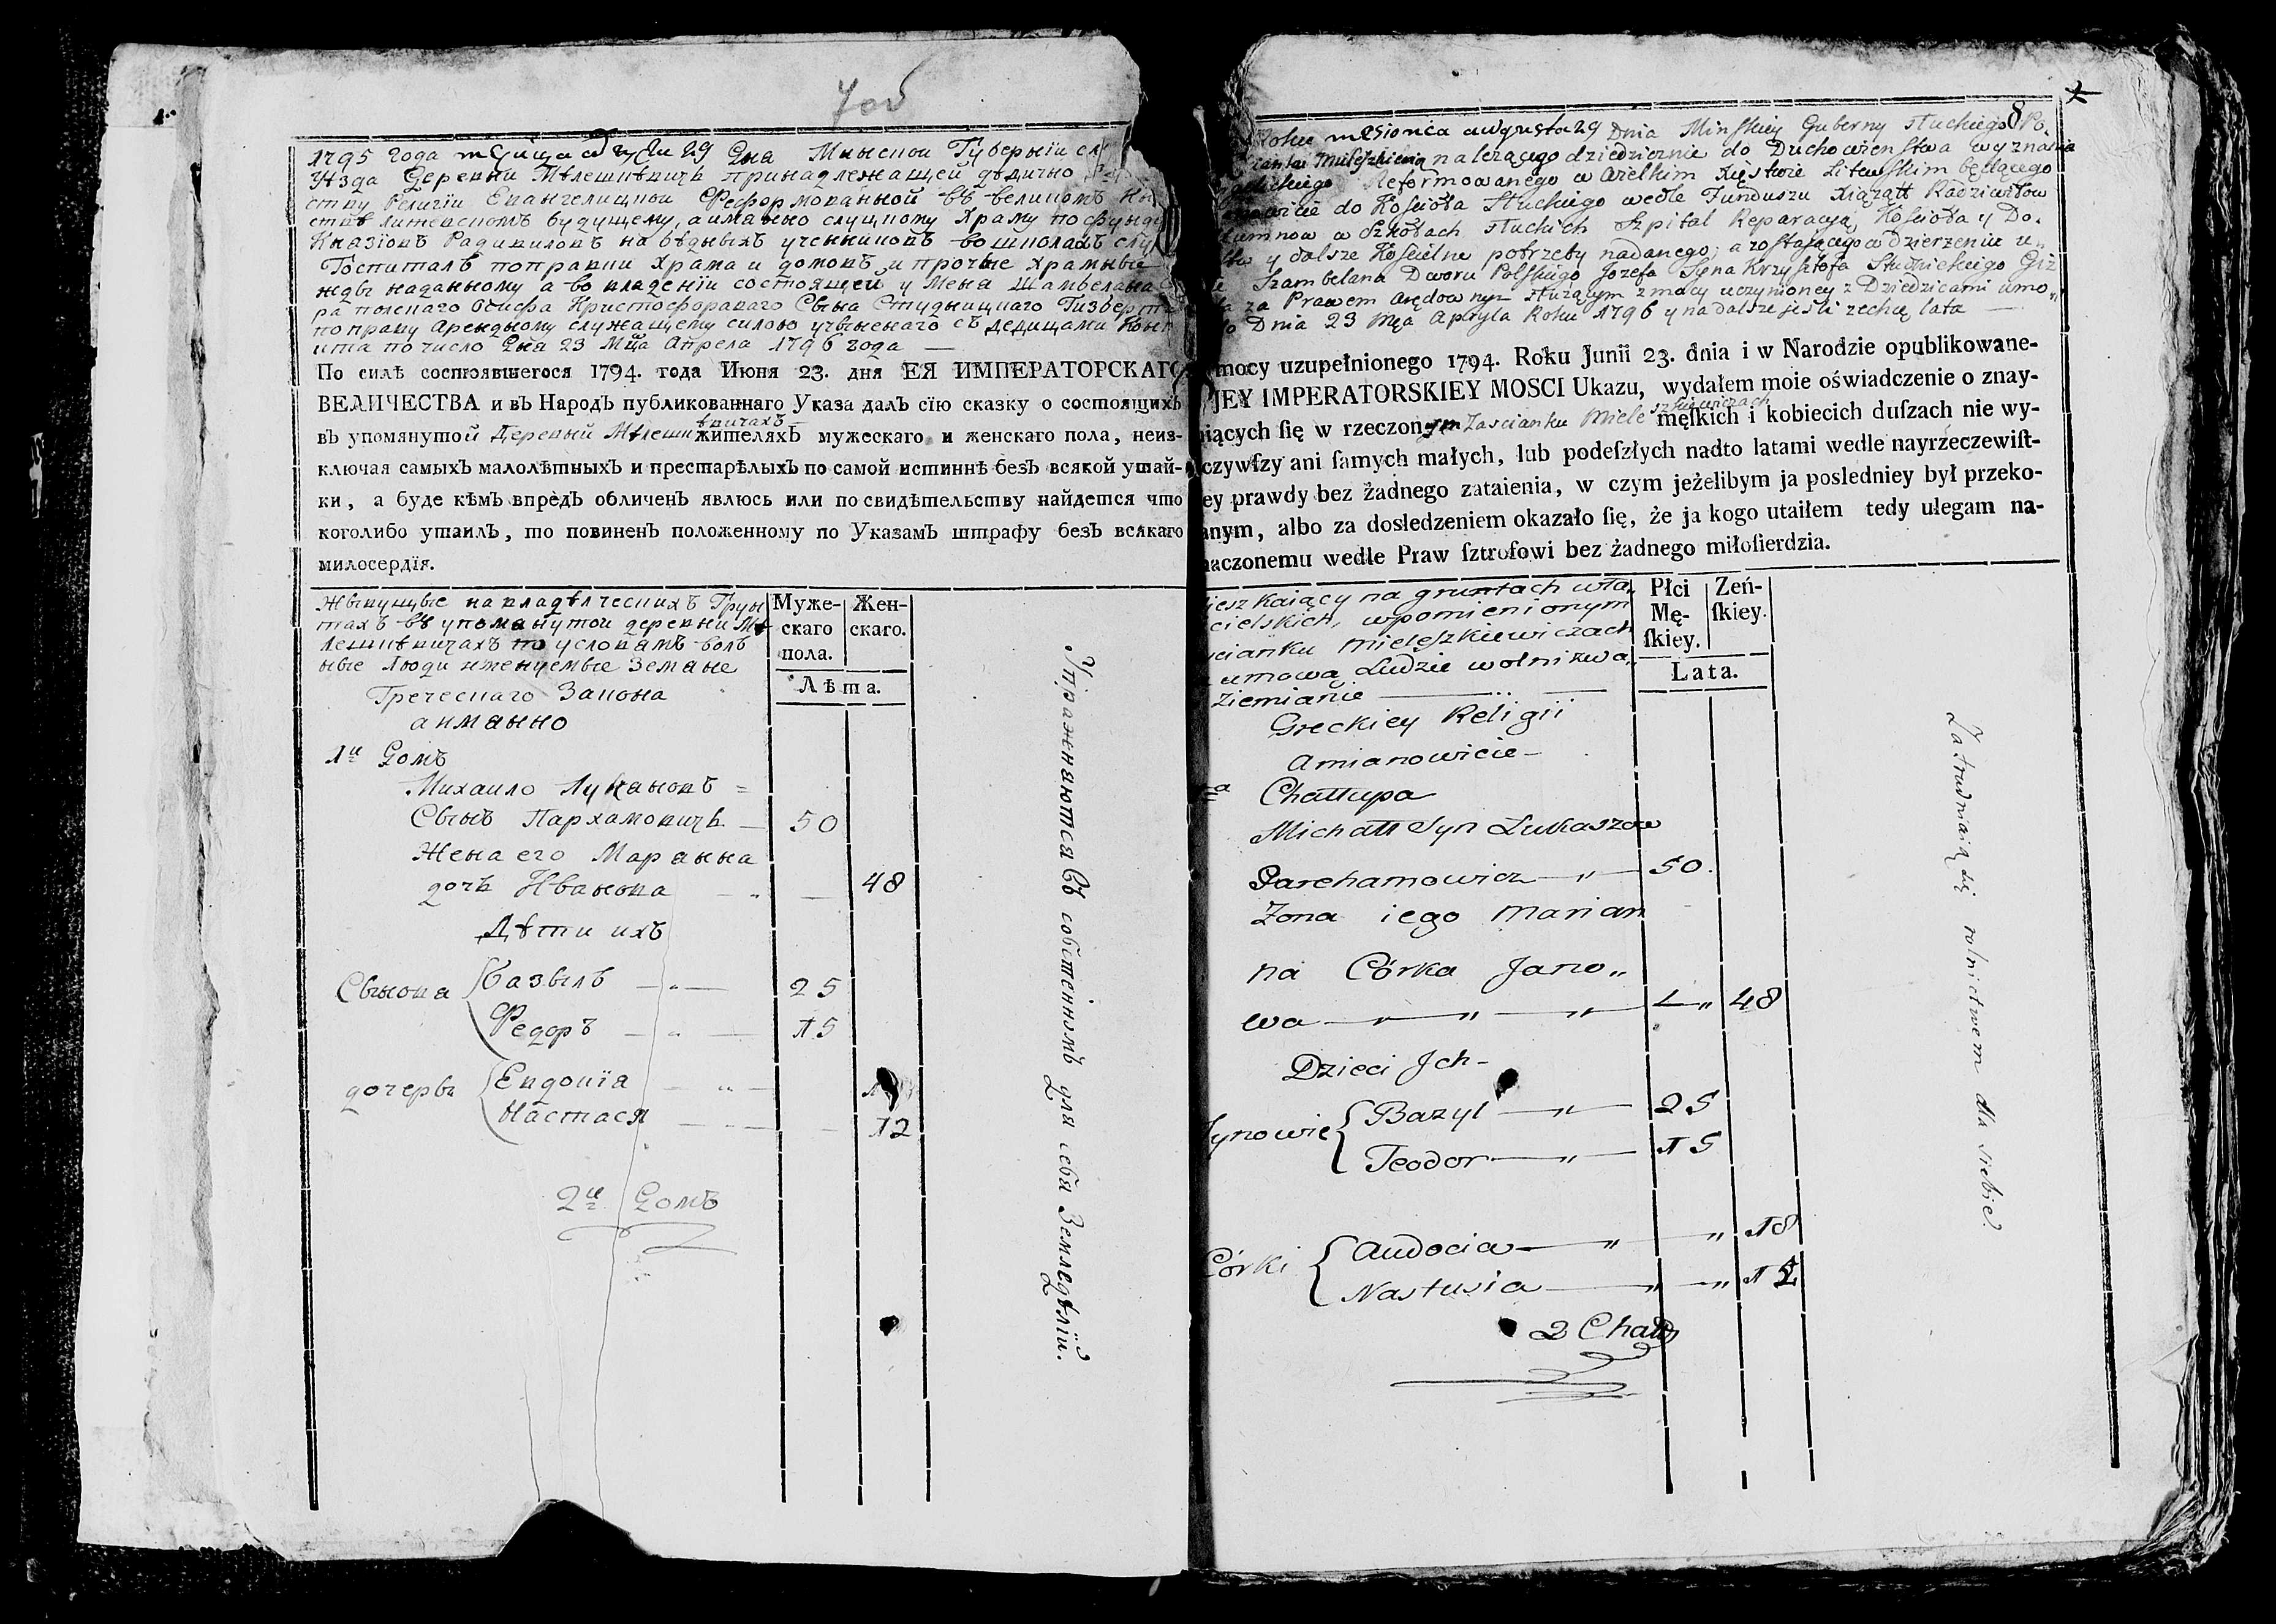 7 об
1795 года месяца августа 29 дня Минской Губернии
Уезда деревни Мелешкевичъ принадлежащей дедично
ству Религіи Евангелицкой Реформованной въ великомъ
стве литевскомъ будущему, а имянно слуцкому Храму по
Князіовъ Радивиловъ на бедныхъ учениковъ во школахъ
Госпиталь поправки храма и домовъ и прочые храмывые
жды наданному а во владеніи состоящей у Меня Шамбеляна
ра полскаго Осифа Кристофораваго Сына Студницкаго Гизберта
по праву Арендному служащему силою учыненаго съ дедицами
по число дня 23 Мца Апреля 1796 года —
По силѣ состоявшегося 1794. года Июня 23. дня ЕЯ ИМПЕРАТОРСКАГО
ВЕЛИЧЕСТВА и въ Народъ публикованнаго Указа далъ сїю сказку о состоящихъ
въ упомянутой деревни Мелешкевичахъ жителяхъ мужескаго и женскаго пола, неиз-
ключая самыхъ малолѣтныхъ и престарѣлыхъ по самой истиннѣ безъ всякой утай-
ки, а буде кѣмъ впредъ обличенъ явлюсь или по свидѣтельству найдется что
коголибо утаилъ, то повиненъ положенному по Указамъ штрафу безъ всякаго
милосердїя.
Жывущые на владелческихъ Грун
тахъ въ упомянутой деревни Ме
лешкевичахъ по условамъ воль
ные люди именуемые Земяне
Греческаго Закона
а имянно
Муже-
скаго
пола.
Жен-
скаго.
Лѣта.
1й Домъ
Михаило Лукашовъ
Сынъ Пархамовичъ — 50
Жена его Марянна
дочь Иванова — 48
Дѣти ихъ
Сынова Базыль — 25
Федоръ — 15
дочеры Евдокія —
Настася — 12
2й Домъ
Упражняются съ собственномъ для себя Земледѣліи.
8
Roku miesionca awgusta 29 Dnia Minskiey Guberny Słuckiego Po.
należącego dziedzicznie do Duchowienstwa Wyznania
Reformowanego w Wielkim Xięstwie Litewskim będącego
do Kościoła Słuckiego wedle Funduszu Xiążąt Radziwiłłow
w Szkołach Słuckich Szpital Reparacyą Kościoła y Do.
y dalsze Kościelne potrzeby nadanego; a zostającego w dzierzeniu u
Szambelana Dworu Polskiego Jozefa Syna Krzysztofa Studnickiego Giz
za Prawem Arędownym służącym z mocy uczynioney z Dziedzicami umo
Dnia 23 Mca Apryla Roku 1796 y na dalsze jesli zechcę lata —
mocy uzupełnionego 1794. Roku Junii 23. dnia i w Narodzie opublikowane-
JEY IMPERATORSKIEY MOSCI Ukazu, wydałem moie oświadczenie o znay-
ących ſię w rzeczonym Zascianku Mieleszkiewiczach męſkich i kobiecich duſzach nie wy-
czywſzy ani ſamych małych, lub podeſzłych nadto latami wedle nayrzeczewiſt-
ey prawdy bez żadnego zataienia, w czym jeżelibym ja posledniey był przeko-
anym, albo za dosledzeniem okazało ſię, że ja kogo utaiłem tedy ulegam na-
naczonemu wedle Praw ſztrofowi bez żadnego miłoſierdzia.
ieszkaiący na gruntach wła„
cielskich, wpomienionym
scianku Mieleszkiewiczach
umową Ludzie wolni zwa„
Ziemianie —
Greckiey Religii
Amianowicie —
Płci
Mę-
ſkiey.
Zeń-
ſkiey.
Lata.
Chałłupa
Michałł Syn Łukaszow
Parchamowicz — 50.
Zona iego Marian
na Córka Jano„
wa — 48
Dzieci Jch —
Synowie Bazyl — 25
Teodor — 15
Córki Audocia — 18
Nastusia — 12
2 Chałł
Zatrudniaią się rolnictwem dla siebie.